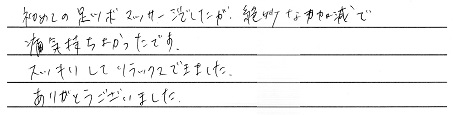 初めての足ツボマッサージでしたが、絶妙な力加減で
痛気持ちよかったです。
スッキリしてリラックスできました。
ありがとうございました。